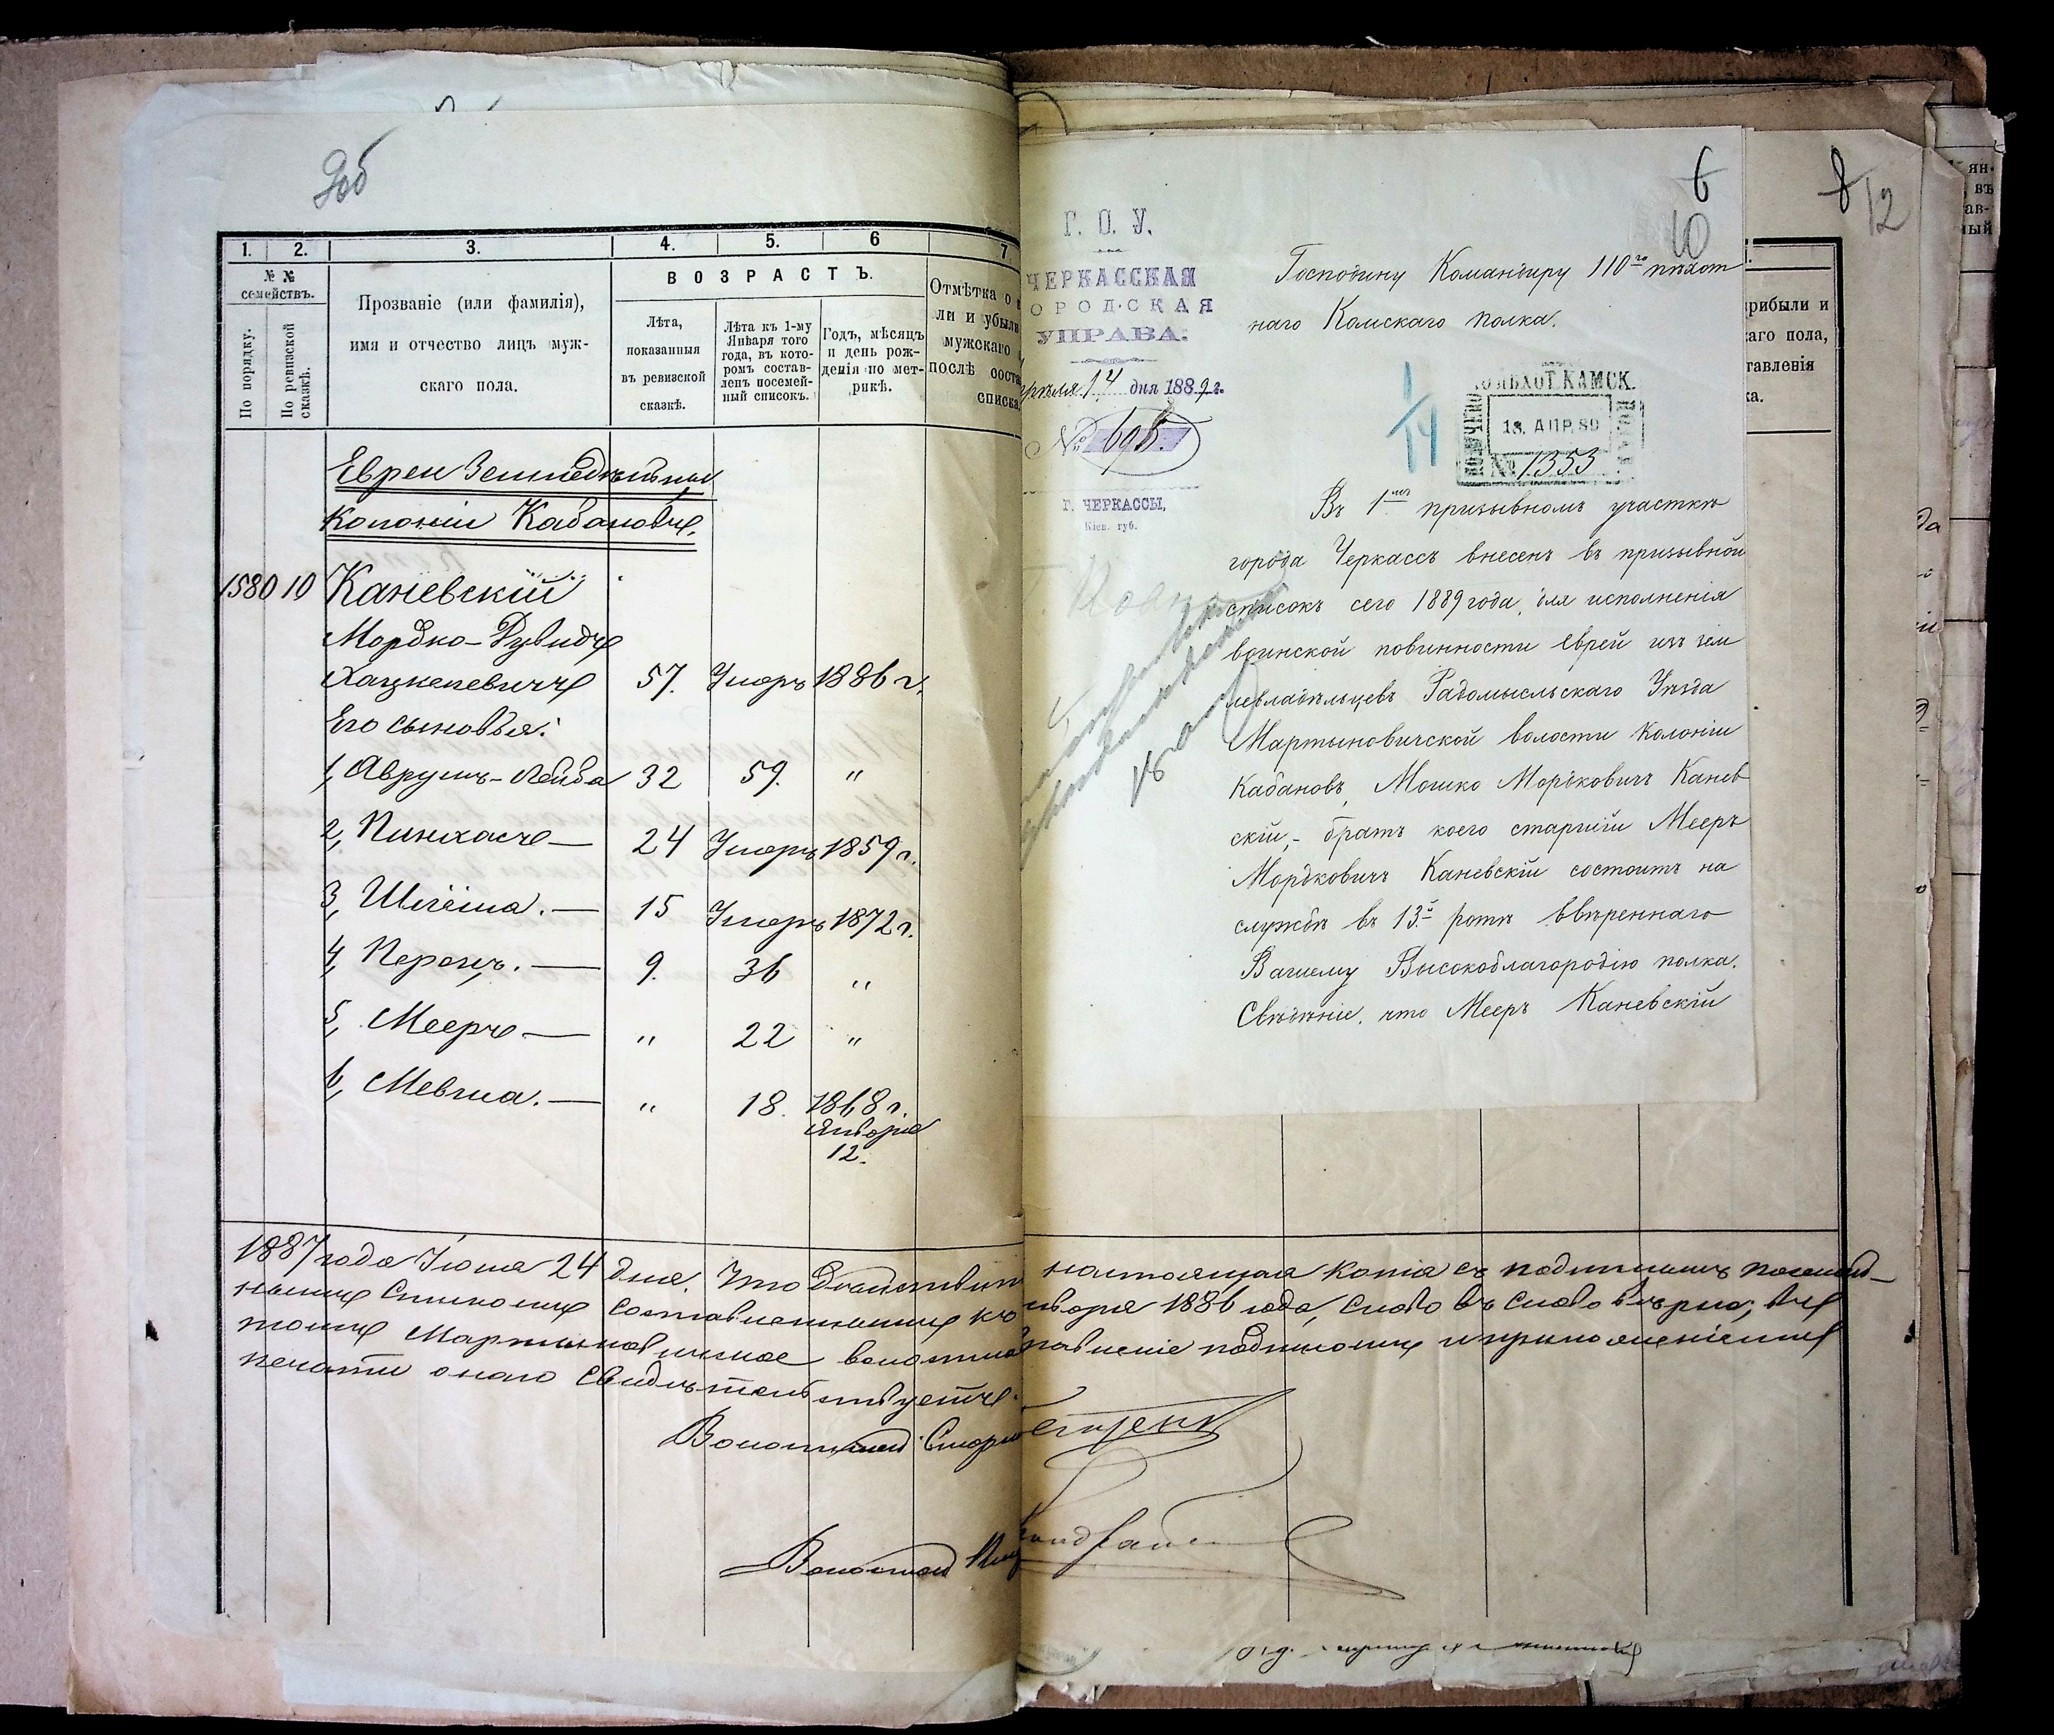 1. 2. 3. 4. 5. 6 7.
№ №
семействъ.
По порядку.
По ревизской
сказкѣ.
Прозваніе (или фамилія),
имя и отчество лицъ муж-
скаго пола.
ВОЗРАСТЪ.
Лѣта,
показанныя
въ ревизской
сказкѣ.
Лѣта къ 1-му
Января того
года, въ кото-
ромъ состав-
ленъ посемей-
ный списокъ.
Годъ, мѣсяцъ
и день рож-
денія по мет-
рикѣ.
Отмѣтка о
ли и убыли
мужскаго
послѣ соста
списка.
Евреи Земледѣльцы
Колоніи Кабановъ.
1580 10 Каневскій
Мордко-Дувидъ
Хацкелевичъ 57. Умеръ 1886 г.
Его сыновья:
1, Аврумъ-Лейба 32 59. "
2, Пинхасъ — 24 Умеръ 1859 г.
3, Шлёма. — 15 Умеръ 1872 г.
4, Перецъ. — 9. 36 "
5, Мееръ — " 22 "
6, — " 18. 1868 г.
Января
12.
1887 года Іюня 24 дня. Что
нымъ Спискомъ составленнымъ къ
томъ Мартыновичское
печати онаго Свидѣтельствуетъ.
Волостной
Волостной
6
10
8
12
Г. О. У.
ЧЕРКАССКАЯ
ОРОДСКАЯ
УПРАВА.
14 дня 1889 г.
№ 695.
Г. ЧЕРКАССЫ,
Кіев. губ.
Господину Командиру 110го пѣхот
наго Камскаго полка.
1/14
КАМСК.
18. АПР. 89
№ 1353
Въ 1мъ призывномъ участкѣ
города Черкассъ внесенъ въ призывной
списокъ сего 1889 года, для исполненія
воинской повинности еврей изъ зем
левладѣльцевъ Радомысльскаго Уѣзда
Мартыновичской волости колоніи
Кабановъ, Мошко Мордковичъ Канев
скій,- братъ коего старшій Мееръ
Мордковичъ Каневскій состоитъ на
службѣ въ 13й ротѣ ввѣреннаго
Вашему Высокоблагородію полка.
Свѣдѣніе, что Мееръ Каневскій
прибыли и
каго пола,
ставленія
ка.
настоящая копія съ подлиннымъ
1886 года, слово въ слово вѣрна, въ
подписомъ и приложеніемъ